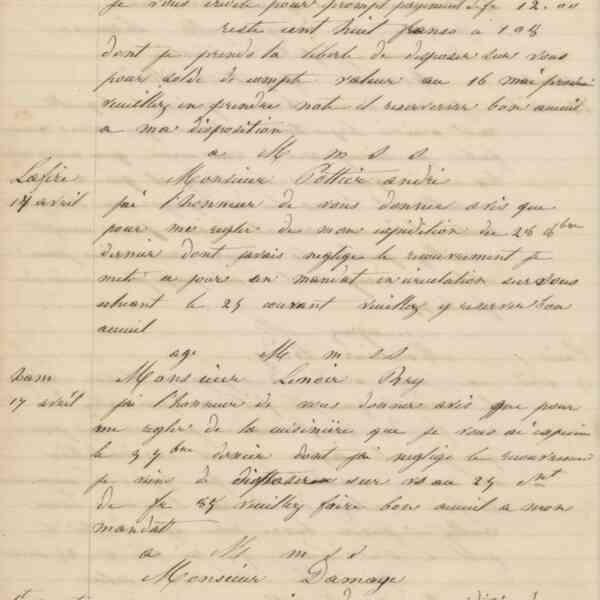 je vous invite pour prompt payement fr 12.00
reste cent huit francs à 108
dont je prends la liberté de disposer sur vous
pour solde de compte valeur au 16 mai prochain
veuillez en prendre note et reserverer bon acueil
a ma disposition
a M m s s
Monsieur Pottier andré
17 avril
jai l'honneur de vous donner avis que
pour me regler de mon expédition du 28 8bre
dernier dont javais negligé le recouvrement je
mets a jour un mandat en circulation sur vous
echeant le 25 courant veuillez y reserver bon
acueil
age M m s s
Monsieur Lenoir
17 avril
jai l'honneur de vous donner avis que pour
me regler de la cuisinière que je vous ai expédié
le 9bre dernier dont jai negligé le recouvrement
je viens de disposer sur vs au 25 ct
de fr 85 veuillez faire bon acueil a mon
mandat
a M m s s
Monsieur Damaye